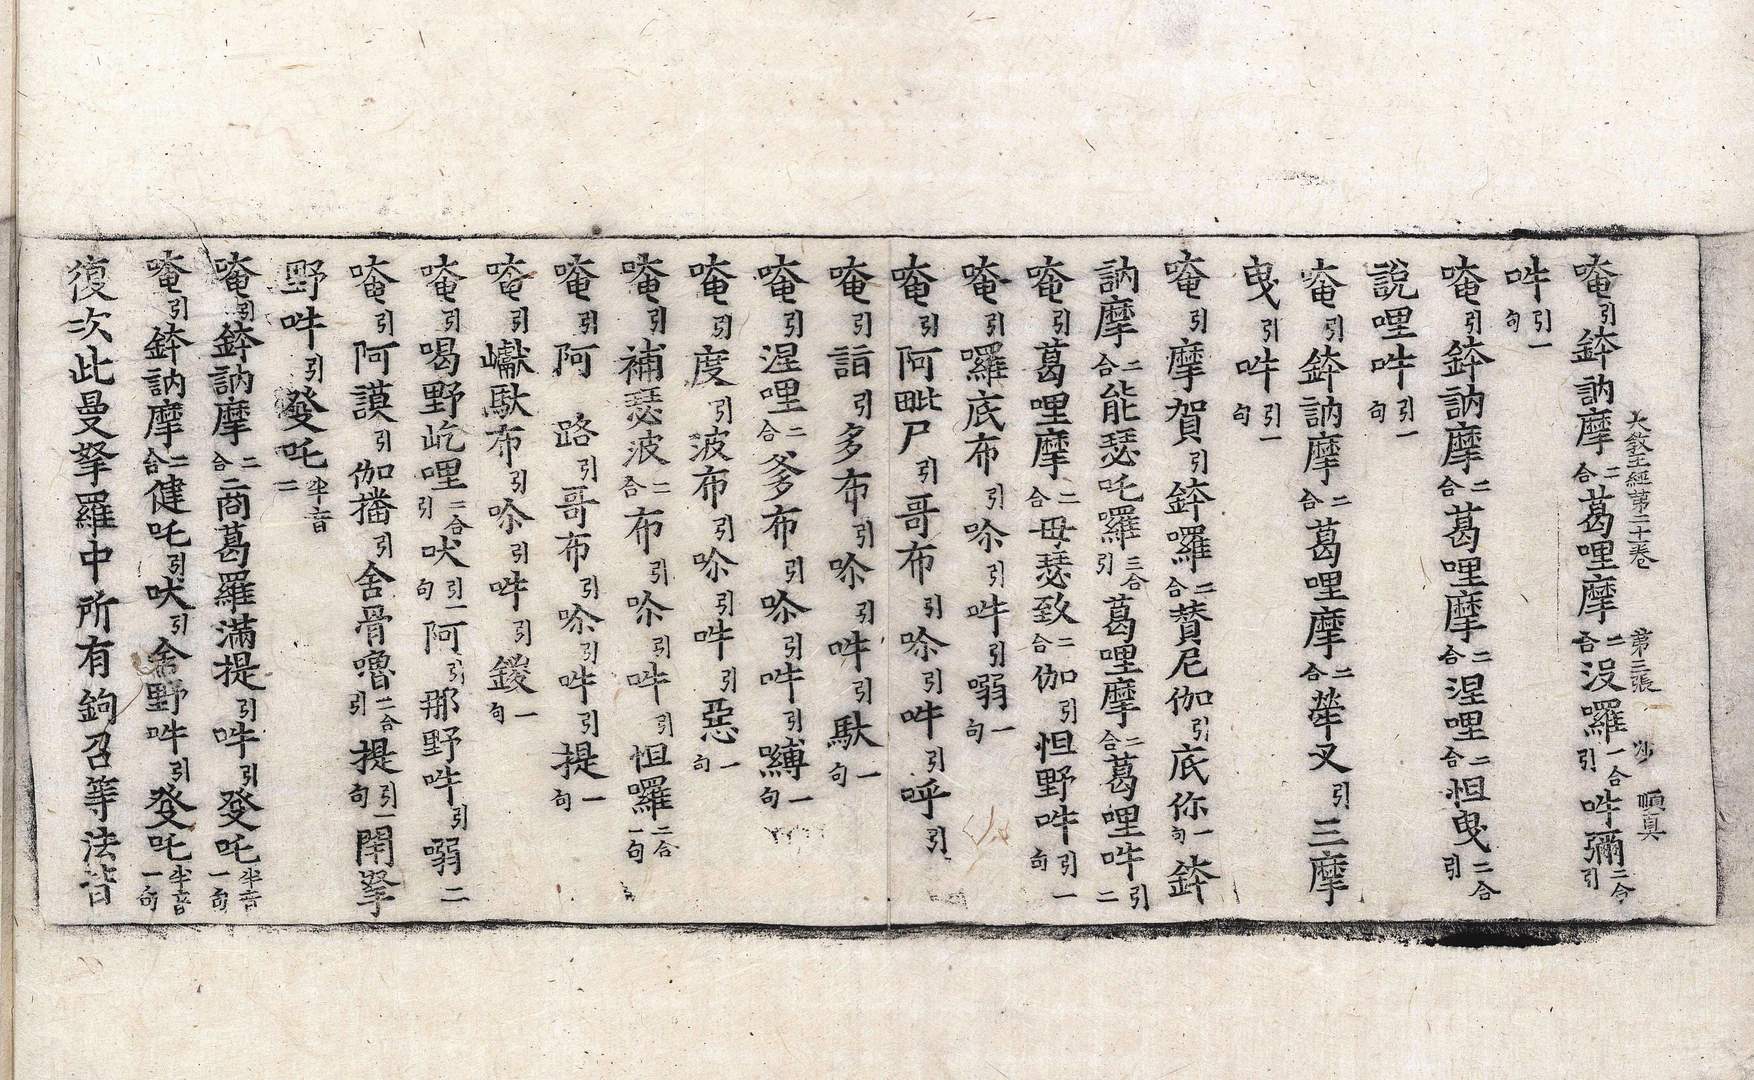 大敎王經第二十卷　第三張　沙　順眞
唵引鉢訥摩二合葛哩摩二合沒囉二合引吽彌二合引
吽引一句
唵引鉢訥摩二合葛哩摩二合涅哩二合怛曳二合引
說哩吽引一句
唵引鉢訥摩二合葛哩摩二合葷叉引三摩
曳引吽引一句
唵引摩賀引鉢囉二合賛尼伽引底你一句鉢
訥摩二合能瑟吒囉三合引葛哩摩二合葛哩吽引二
唵引葛哩摩二合毋瑟致二合伽引怛野吽引一句
唵引囉底布引唹引吽引嗍一句
唵引阿毗尸引哥布引唹引吽引呼引
唵引詣引多布引唹引吽引馱一句
唵引涅哩二合爹布引唹引吽引嚩一句
唵引度引波布引唹引吽引惡一句
唵引補瑟波二合布引唹引吽引怛囉二合一句
唵引阿路引哥布引唹引吽引提一句
唵引巘馱布引唹引吽引鍐一句
唵引喝野屹哩二合引吠引一句阿引那野吽引嗍二
唵引阿謨引伽播引舍骨嚕二合引提引一句閉拏
野吽引發吒半音二
唵引鉢訥摩二合商葛羅滿提引吽引發吒半音一句
唵引鉢訥摩二合健吒引吠引舍野吽引發吒半音一句
復次此曼拏羅中所有鉤召等法皆